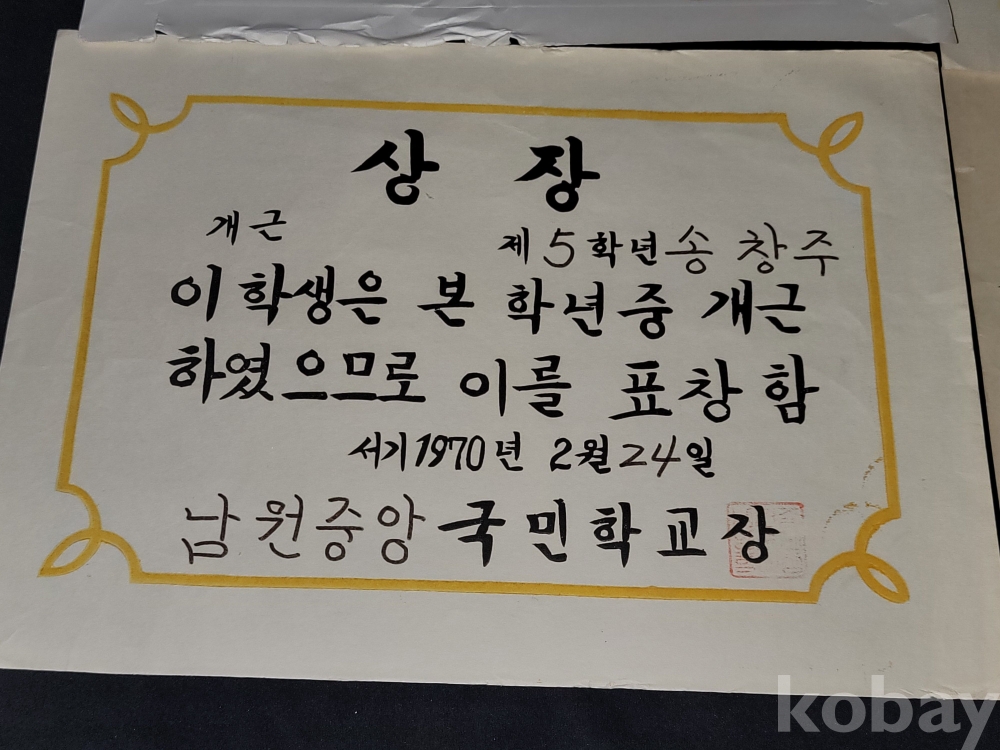 상 장
개근
제5학년 송 창 주
이 학생은 본 학년중 개근
하였으므로 이를 표창함
서기1970년 2월24일
남원중앙국민학교장
kobay